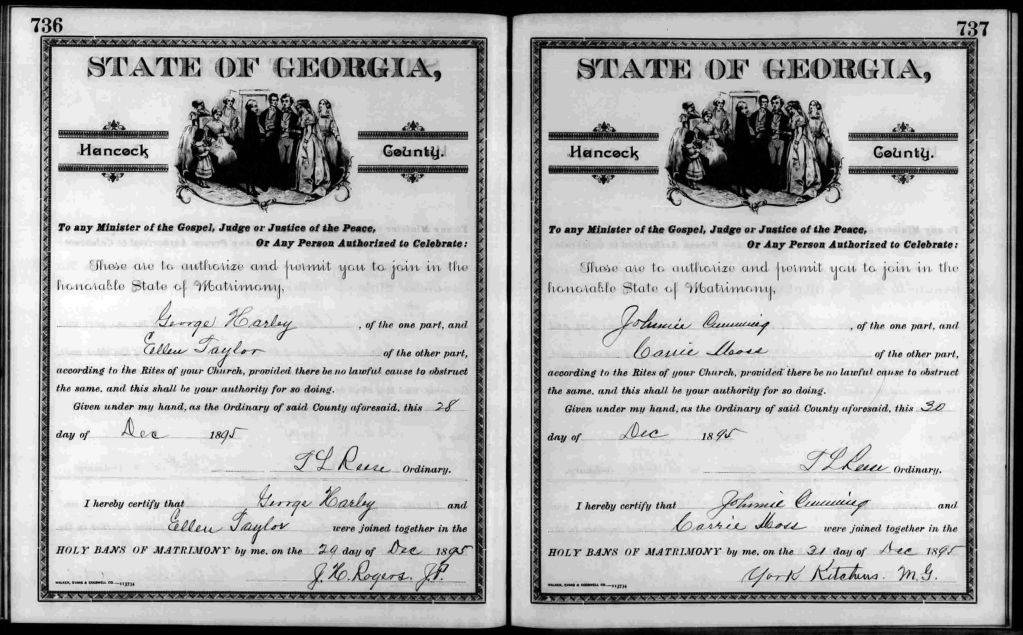 736
STATE OF GEORGIA,
Hancock County.
To any Minister of the Gospel, Judge or Justice of the Peace,
Or Any Person Authorized to Celebrate:
These are to authorize and permit you to join in the
honorable State of Matrimony,
George Harley, of the one part, and
Ellen Taylor of the other part,
according to the Rites of your Church, provided there be no lawful cause to obstruct
the same, and this shall be your authority for so doing.
Given under my hand, as the Ordinary of said County aforesaid, this 28
day of Dec 1895
T L Reese Ordinary.
I hereby certify that George Harley and
Ellen Taylor were joined together in the
HOLY BANS OF MATRIMONY by me, on the 29 day of Dec 1895
J. H. Rogers. J.P.
WALKER, EVANS & COGSWELL CO.
737
STATE OF GEORGIA,
Hancock County.
To any Minister of the Gospel, Judge or Justice of the Peace,
Or Any Person Authorized to Celebrate:
These are to authorize and permit you to join in the
honorable State of Matrimony,
Johnnie Cumming, of the one part, and
Carrie Moss of the other part,
according to the Rites of your Church, provided there be no lawful cause to obstruct
the same, and this shall be your authority for so doing.
Given under my hand, as the Ordinary of said County aforesaid, this 30
day of Dec 1895
T L Reese Ordinary.
I hereby certify that Johnnie Cumming and
Carrie Moss were joined together in the
HOLY BANS OF MATRIMONY by me, on the 31 day of Dec 1895
York Kitchens. M.G.
WALKER, EVANS & COGSWELL CO.